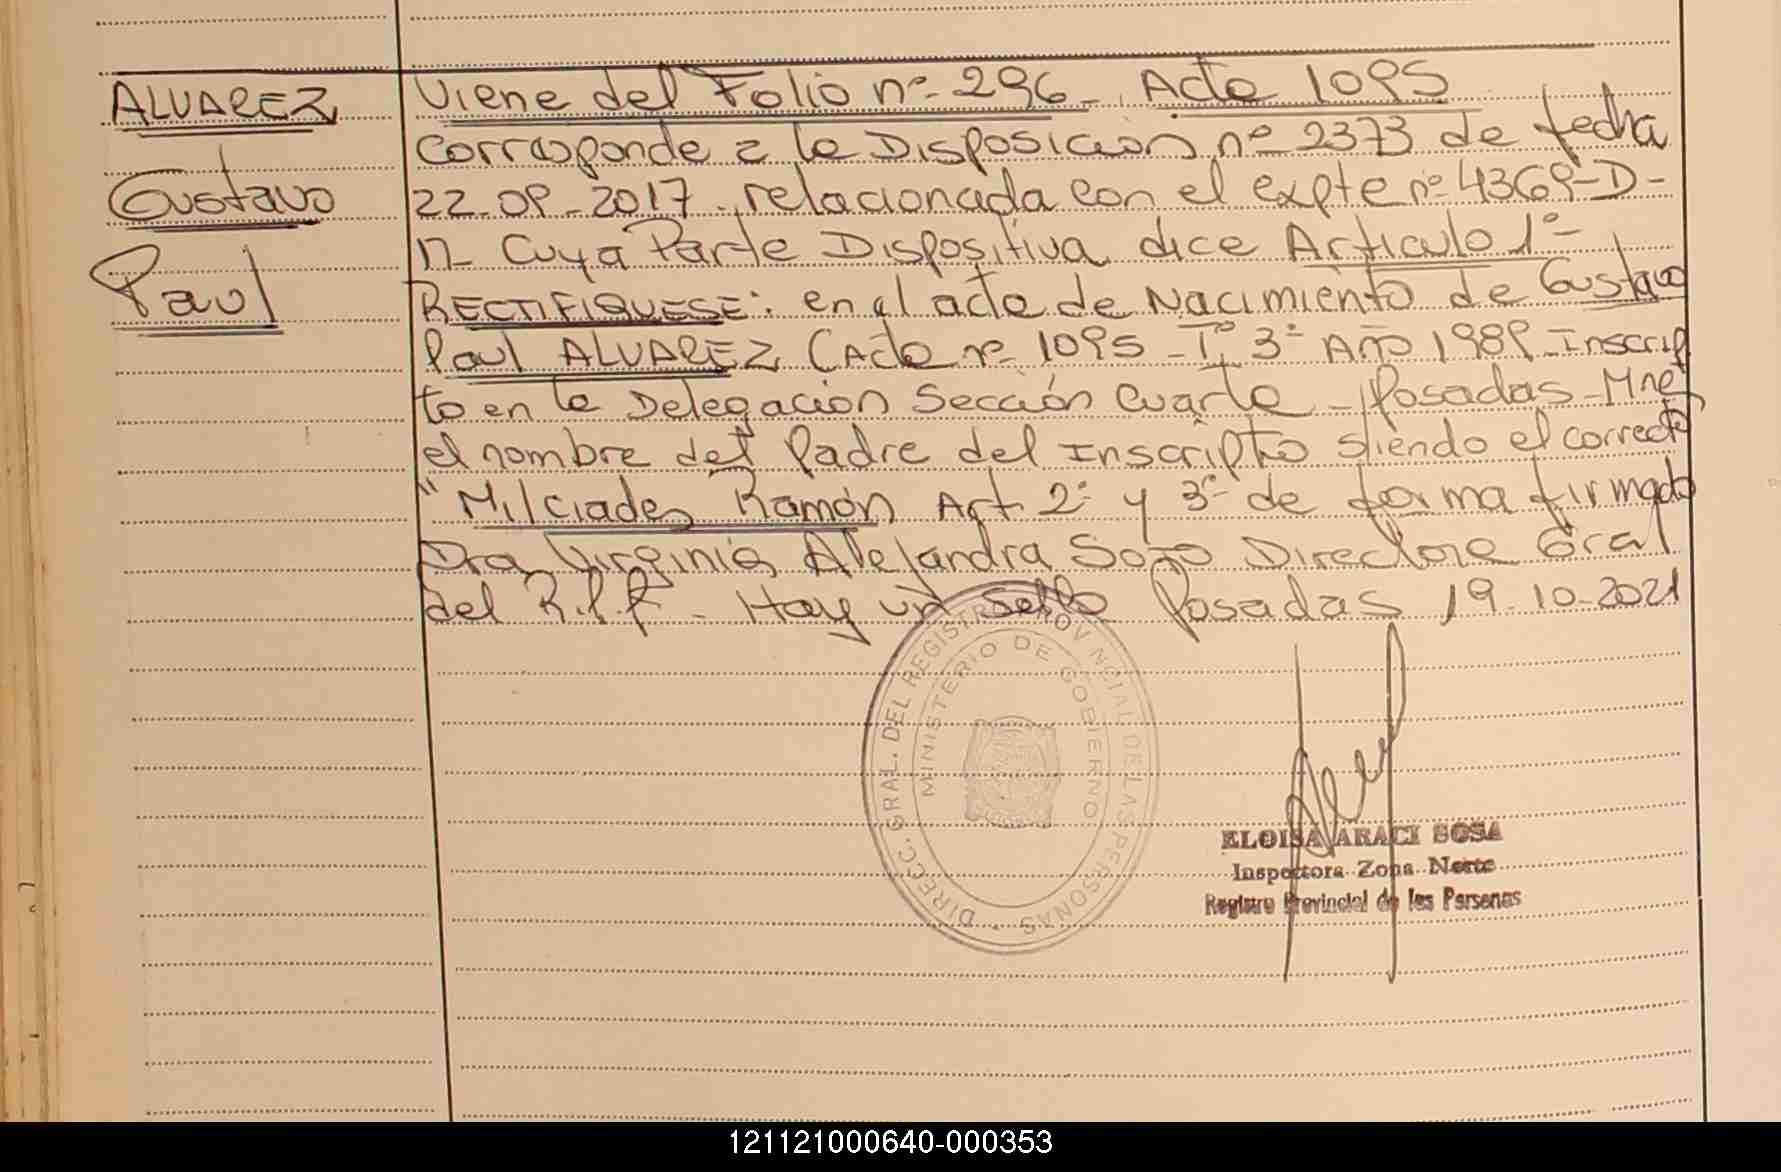 ALVAREZ
Gustavo
Paul
Viene del Folio nº 296 - Acta 1095
Corresponde a la Disposición nº 2373 de fecha
22-09-2017 - relacionada con el expte nº 4369-D-
17- Cuya Parte Dispositiva dice Articulo 1º-
RECTIFIQUESE: en el acta de Nacimiento de Gustavo
Paul ALVAREZ (Acta nº 1095 - Tº 3º Año 1989 - Inscrip
to en la Delegación Sección Cuarta - Posadas - Mnes
el nombre del Padre del Inscripto siendo el correcto
"Milciades Ramón Art 2º y 3º de forma firmado
Dra Virginia Alejandra Sozo Directora Gral
del R.P.P. - Hay un Sello Posadas 19-10-2021
DIRECC. GRAL. DEL REGISTRO PROVINCIAL DE LAS PERSONAS
MINISTERIO DE GOBIERNO
ELOISA ARACI SOSA
Inspectora Zona Norte
Registro Provincial de las Personas
121121000640-000353